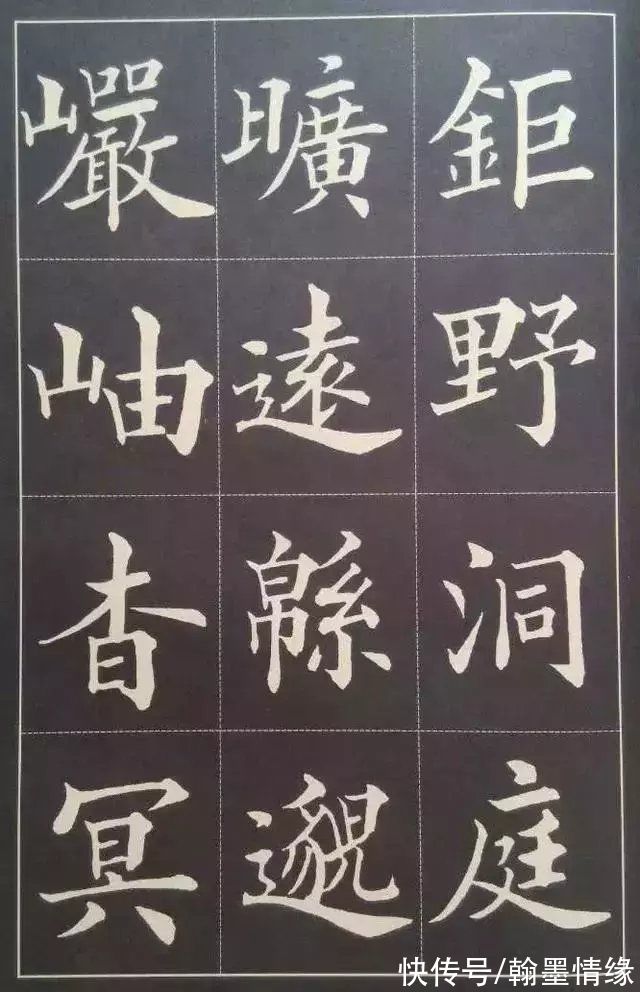 鉅野洞庭
曠遠緜邈
巗岫杳冥
快传号/翰墨情缘